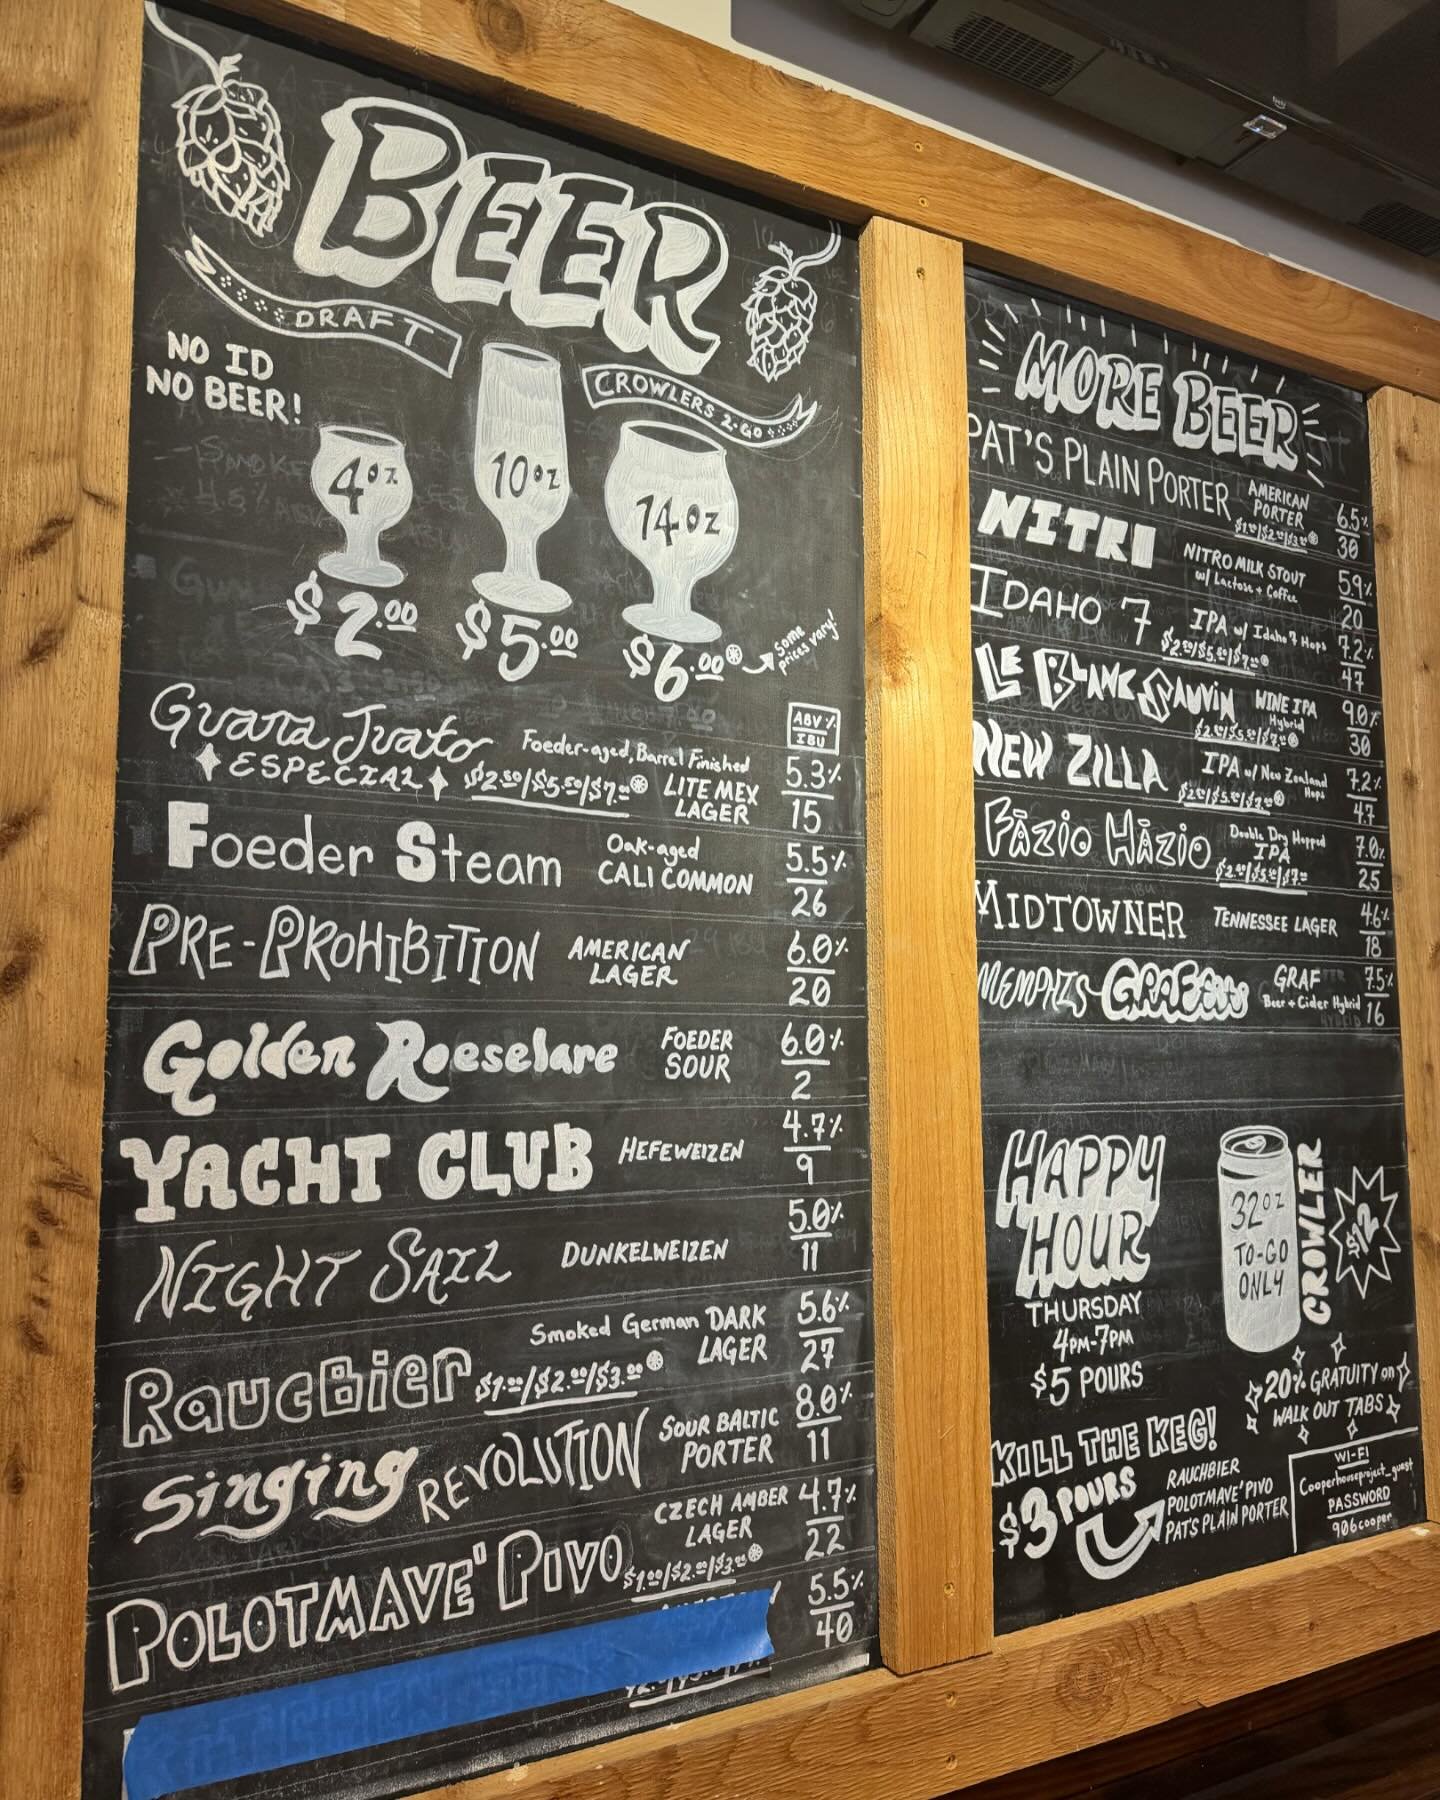 BEER
DRAFT
CROWLERS 2-GO
NO ID
NO BEER!
4oz
10oz
14oz
$2.00
$5.00
$6.00*
Some
prices vary!
ABV%
IBU
Guara Jvato
ESPECIAL
Foeder-aged, Barrel Finished
$2.50/$5.50/$7.00*
LITE MEX
LAGER
5.3%
15
Foeder Steam
Oak-aged
CALI COMMON
5.5%
26
PRE-PROHIBITION
AMERICAN
LAGER
6.0%
20
Golden Roeselare
FOEDER
SOUR
6.0%
2
YACHT CLUB
HEFEWEIZEN
4.7%
9
NIGHT SAIL
DUNKELWEIZEN
5.0%
11
Raucbier
Smoked German DARK
LAGER
$1.00/$2.00/$3.00*
5.6%
27
Singing REVOLUTION
SOUR BALTIC
PORTER
8.0%
11
POLOTMAVE' PIVO
CZECH AMBER
LAGER
$1.00/$2.00/$3.00*
4.7%
22
5.5%
40
MORE BEER
PAT'S PLAIN PORTER
AMERICAN
PORTER
$1.00/$2.00/$3.00*
6.5%
30
NITRI
NITRO MILK STOUT
w/ Lactose + Coffee
5.9%
20
IDAHO 7
IPA w/ Idaho 7 Hops
$2.00/$5.00/$7.00*
7.2%
47
LE BLANC SAUVIN
WINE IPA
Hybrid
$2.00/$5.00/$7.00*
9.0%
30
NEW ZILLA
IPA w/ New Zealand
Hops
7.2%
47
FĀZIO HĀZIO
Double Dry Hopped
IPA
7.0%
25
MIDTOWNER
TENNESSEE LAGER
4.6%
18
MEMPHIS GRAFfiti
GRAF
Beer + Cider Hybrid
7.5%
16
HAPPY
HOUR
THURSDAY
4PM-7PM
$5 POURS
32oz
TO-GO
ONLY
CROWLER
$12
20% GRATUITY on
WALK OUT TABS
KILL THE KEG!
$3 POURS
RAUCHBIER
POLOTMAVE' PIVO
PAT'S PLAIN PORTER
WI-FI
Cooperhouseproject_guest
PASSWORD
906cooper